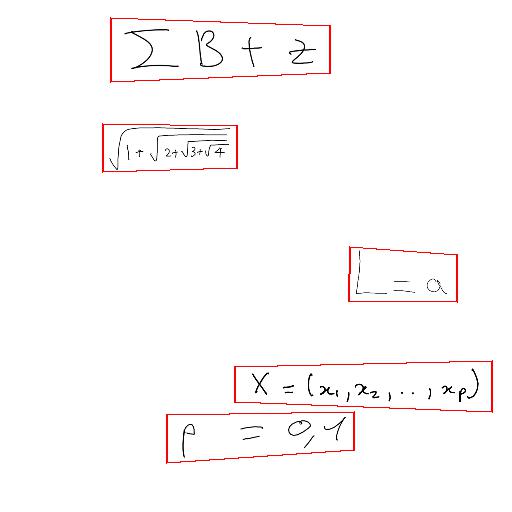 ∑ B + z
√(1 + √(2 + √(3 + √4)))
L = a
X = (x₁, x₂, . . , xₚ)
p = 0,1